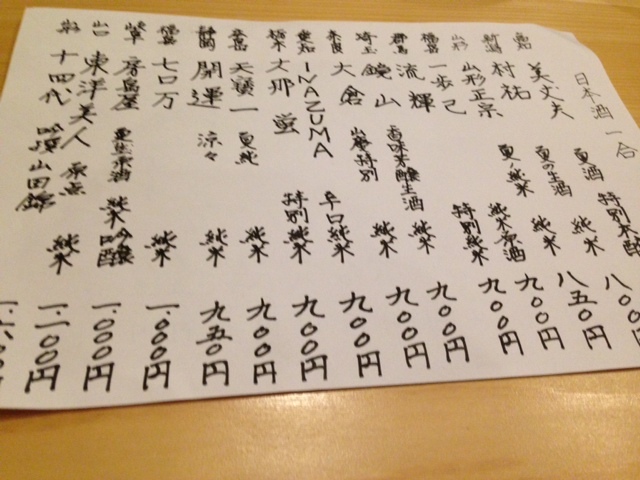 日本酒一合
高知 美丈夫 夏酒 特別本醸 八〇〇円
新潟 村祐 夏の生酒 純米 八五〇円
山形 山形正宗 夏ノ純米 純米 九〇〇円
福島 一歩己 純米原酒 九〇〇円
群馬 流輝 特別純米 九〇〇円
埼玉 鏡山 香味芳醸生酒 純米 九〇〇円
奈良 大倉 山廃特別 純米 九〇〇円
愛知 INAZUMA 辛口純米 九〇〇円
栃木 文那 蛍 特別純米 九〇〇円
天穣一 夏純 純米 九〇〇円
静岡 開運 涼々 純米 九五〇円
福島 七口万 純米 一、〇〇〇円
房島屋 夏生原酒 純米吟醸 一、〇〇〇円
山口 東洋美人 原点 一、〇〇〇円
山形 十四代 吟撰 山田錦 純米 一、一〇〇円